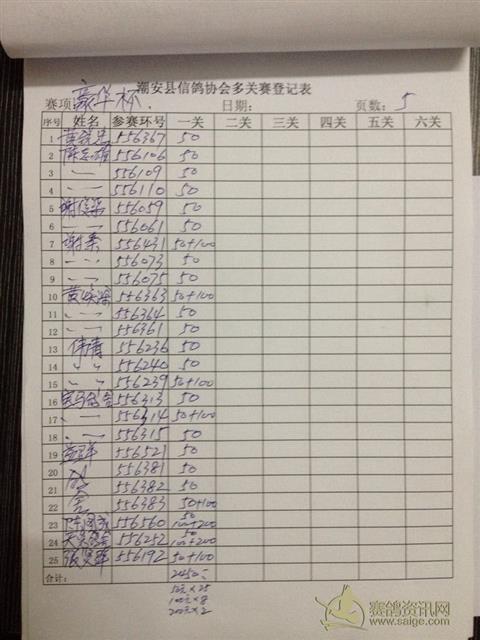 潮安县信鸽协会多关赛登记表
赛项:豪华杯. 日期: 页数: 5
序号 姓名 参赛环号 一关 二关 三关 四关 五关 六关
1 556367 50
2 陈志雄 556106 50
3 〃 一 556109 50
4 〃 一 556110 50
5 556059 50
6 〃 一 556061 50
7 556431 50+100
8 〃 一 556073 50
9 〃 一 556075 50
10 556363 50+100
11 〃 一 556364 50
12 〃 一 556361 50
13 伟清 556236 50
14 〃 〃 556240 50
15 〃 〃 556239 50+100
16 556313 50
17 〃 一 556314 50+100
18 〃 一 556315 50
19 556521 50
20 556381 50
21 556382 50
22 556383 50+100
23 556560 50 100+200
24 556252 50 100+200
25 556192 50+100
合计: 2450元
50元×25
100元×8
200元×2
赛鸽资讯网
www.saige.com